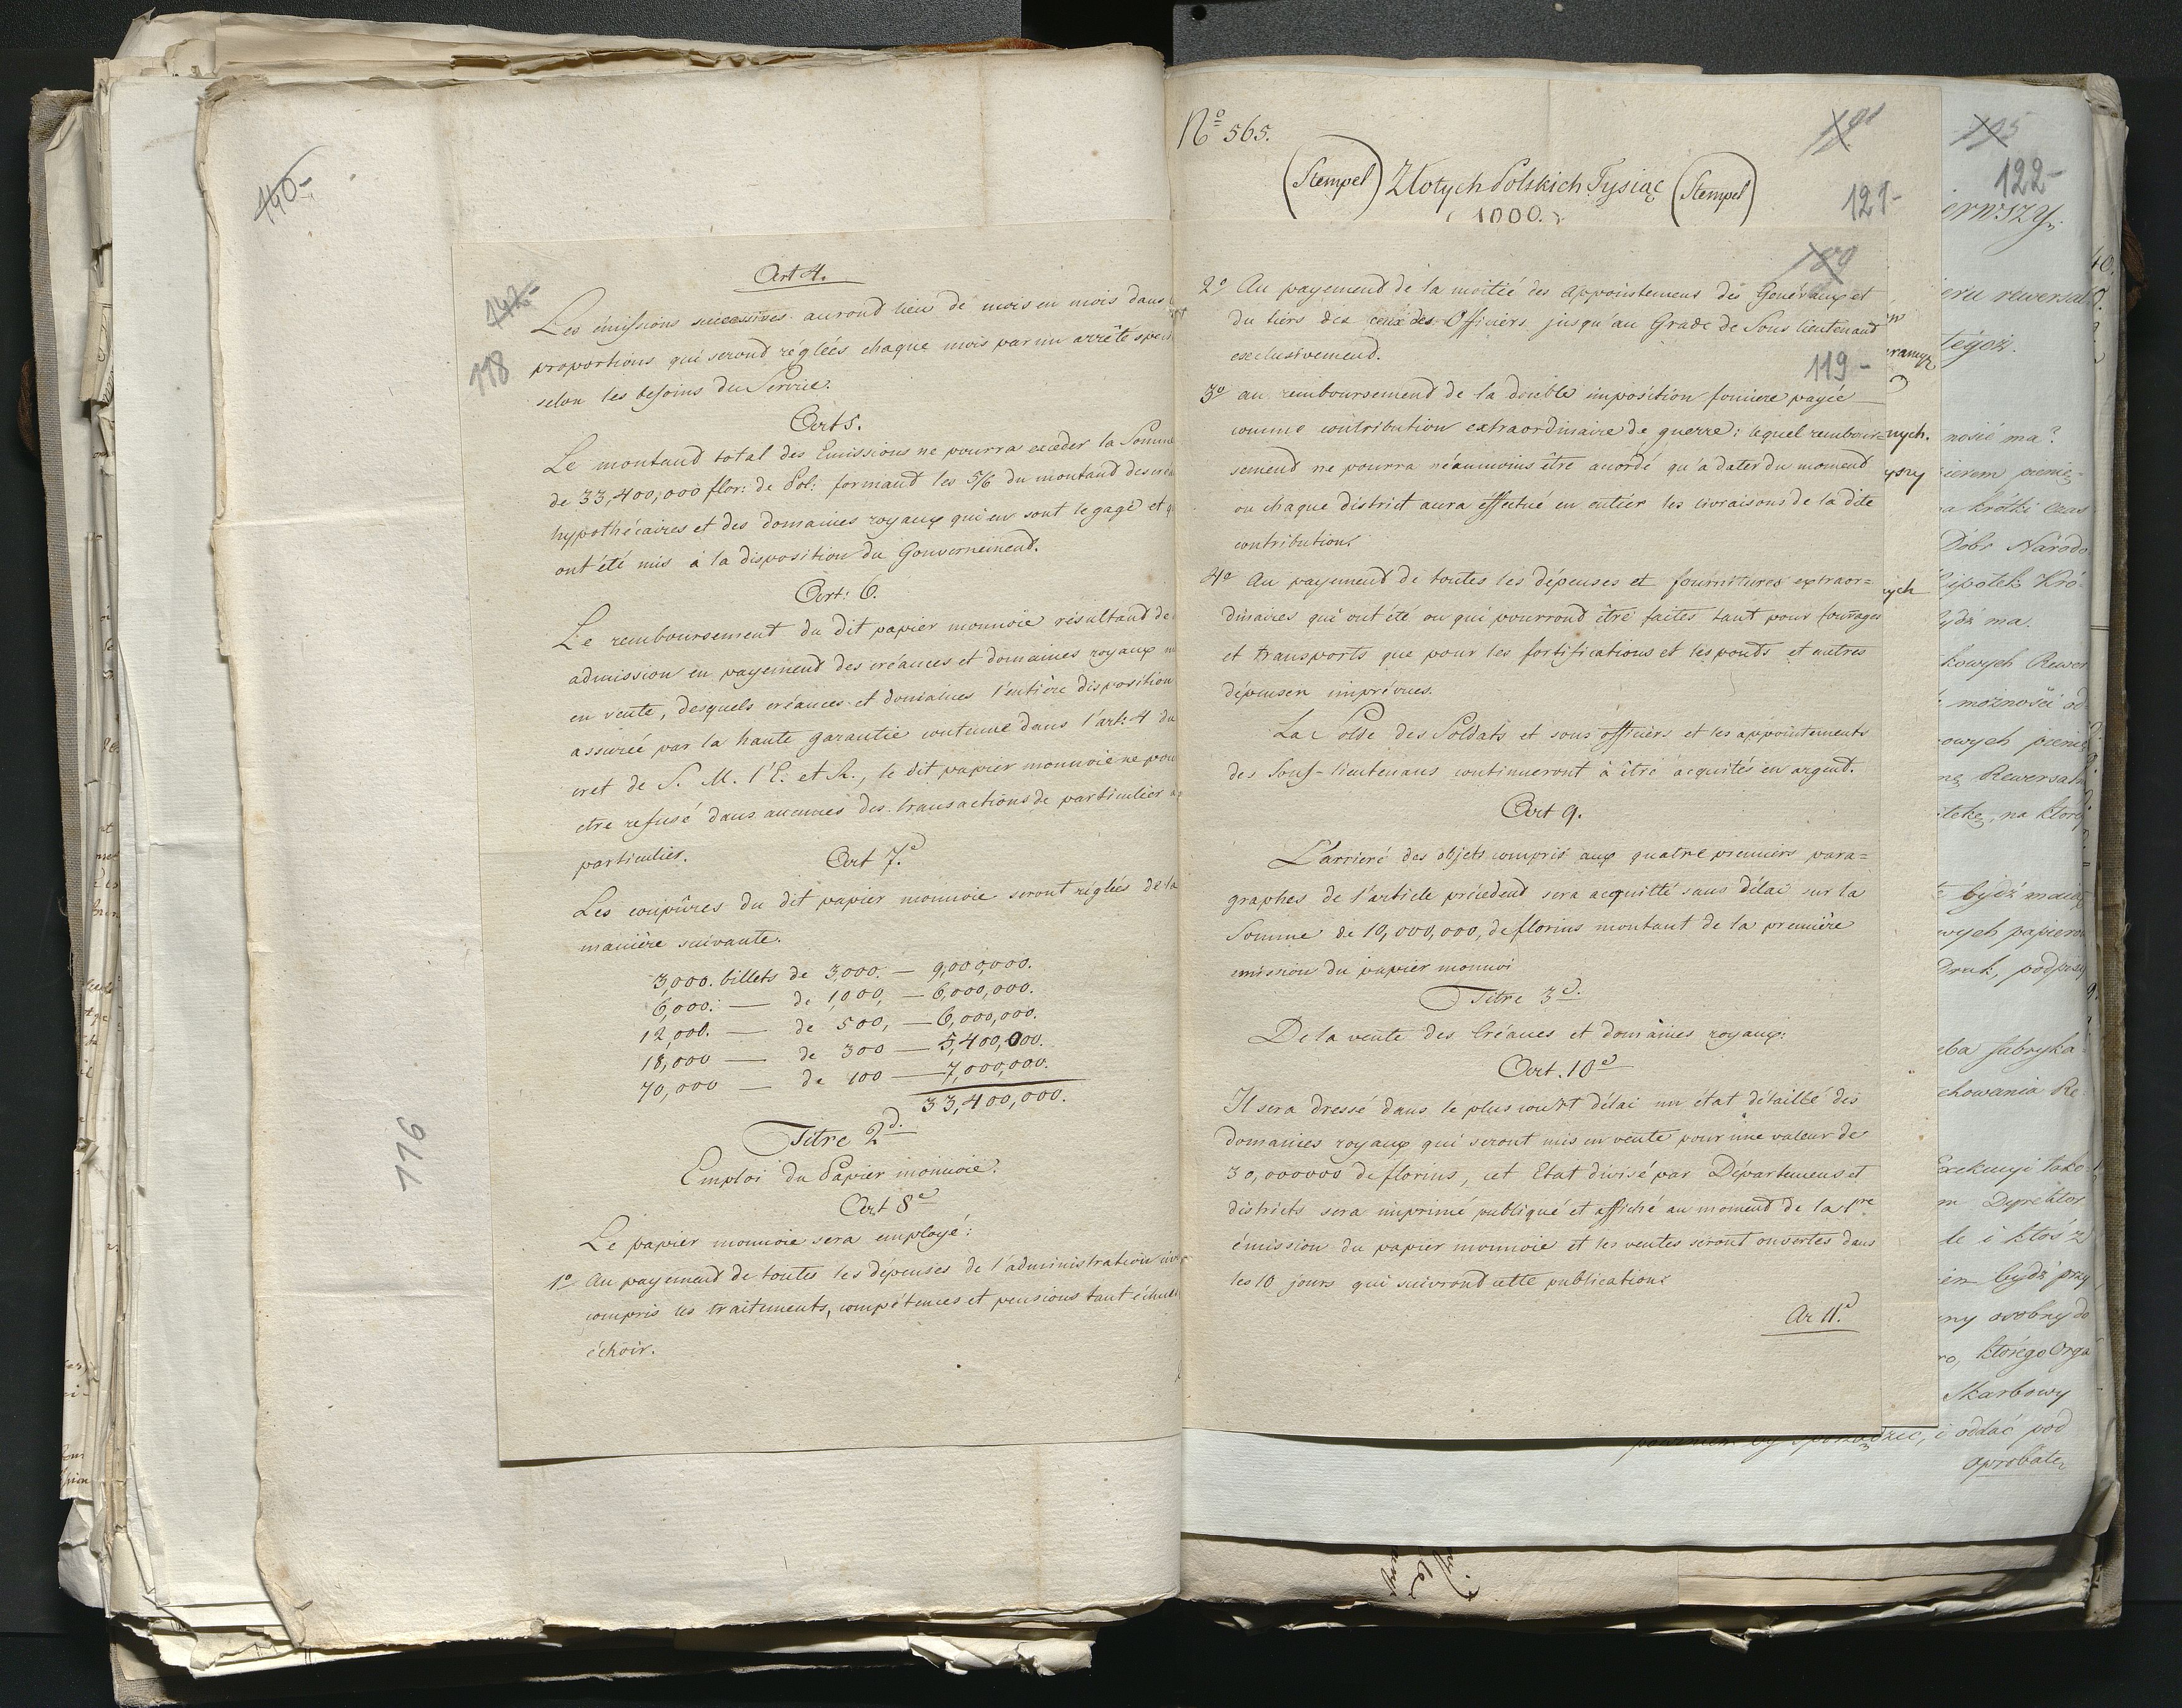 140-
Art 4.
142-
118
Les émissions successives auront lieu de mois en mois dans
proportions qui seront réglées chaque mois par un arrêté
selon les besoins du Service.
Art 5.
Le montant total des Emissions ne pourra excéder la Somme
de 33,400,000 flor: de Pol: formant les 5/6 du montant des
hypothécaires et des domaines royaux qui en sont le gage et
ont été mis à la disposition du Gouvernement.
Art: 6.
Le remboursement du dit papier monnoie résultant de
admission en payement des créances et domaines royaux
en vente, desquels créances et domaines l'entière disposition
assurée par la haute garantie contenue dans l'art: 4 du
cret de S. M. l'E. et R., le dit papier monnoie ne
etre refusé dans aucunes des transactions de particulier
particulier.
Art 7.e
Les coupûres du dit papier monnoie seront réglées de la
manière suivante.
3,000. billets de 3,000. — 9,000,000.
6,000. — de 1000, — 6,000,000.
12,000. — de 500, — 6,000,000.
18,000 — de 300 — 5,400,000.
70,000 — de 100 — 7,000,000.
33,400,000.
Titre 2d.
Emploi du Papier monnoie.
Art 8e
Le papier monnoie sera employé:
1o Au payement de toutes les dépenses de l'administration
compris les traitements, compétences et pensions tant
échoir.
116
No 565.
(Stempel) Złotych Polskich Tysiąc (Stempel)
1000.
121-
119-
2o Au payement de la moitié des appointemens des Généraux et
du tiers des ceux des Officiers jusqu'au Grade de Sous lieutenant
exclusivement.
3o au remboursement de la double imposition foncière payée
comme contribution extraordinaire de guerre: lequel rembour=
sement ne pourra néanmoins être accordé qu'a dater du moment
ou chaque district aura effectué en entier les livraisons de la dite
contribution.
4o Au payement de toutes les dépenses et fournitures extraor=
dinaires qui ont été ou qui pourront être faites tant pour fourages
et transports que pour les fortifications et les ponts et autres
dépenses imprévues.
La Solde des Soldats et sous officiers et les appointements
des Sous-lieutenans continueront à être acquités en argent.
Art 9.
L'arrieré des objets compris aux quatre premiers para=
graphes de l'article précedent sera acquitté sans délai sur la
Somme de 10,000,000, de florins montant de la première
emission du papier monnoi
Titre 3e.
De la vente des Créances et domaines royaux:
Art. 10e
Il sera dressé dans le plus court délai un état détaillé des
domaines royaux qui seront mis en vente pour une valeur de
30,000000 de florins, cet Etat divisé par Départemens et
districts sera imprimé publiqué et affiché au moment de la 1re
émission du papier monnoie et les ventes seront ouvertes dans
les 10 jours qui suivront cette publication.
Ar 11.e
nych.
122-
tegoż.
nosić ma?
a krótki czas
Dóbr Narodo
bydź ma.
możności od
na które
bydź maią
Druk,
chowania Re
Dyrektor
le i ktoś z
bydź przy
ny osobny do
ro, którego Orga
Skarbowy
i oddać pod
aprobatę